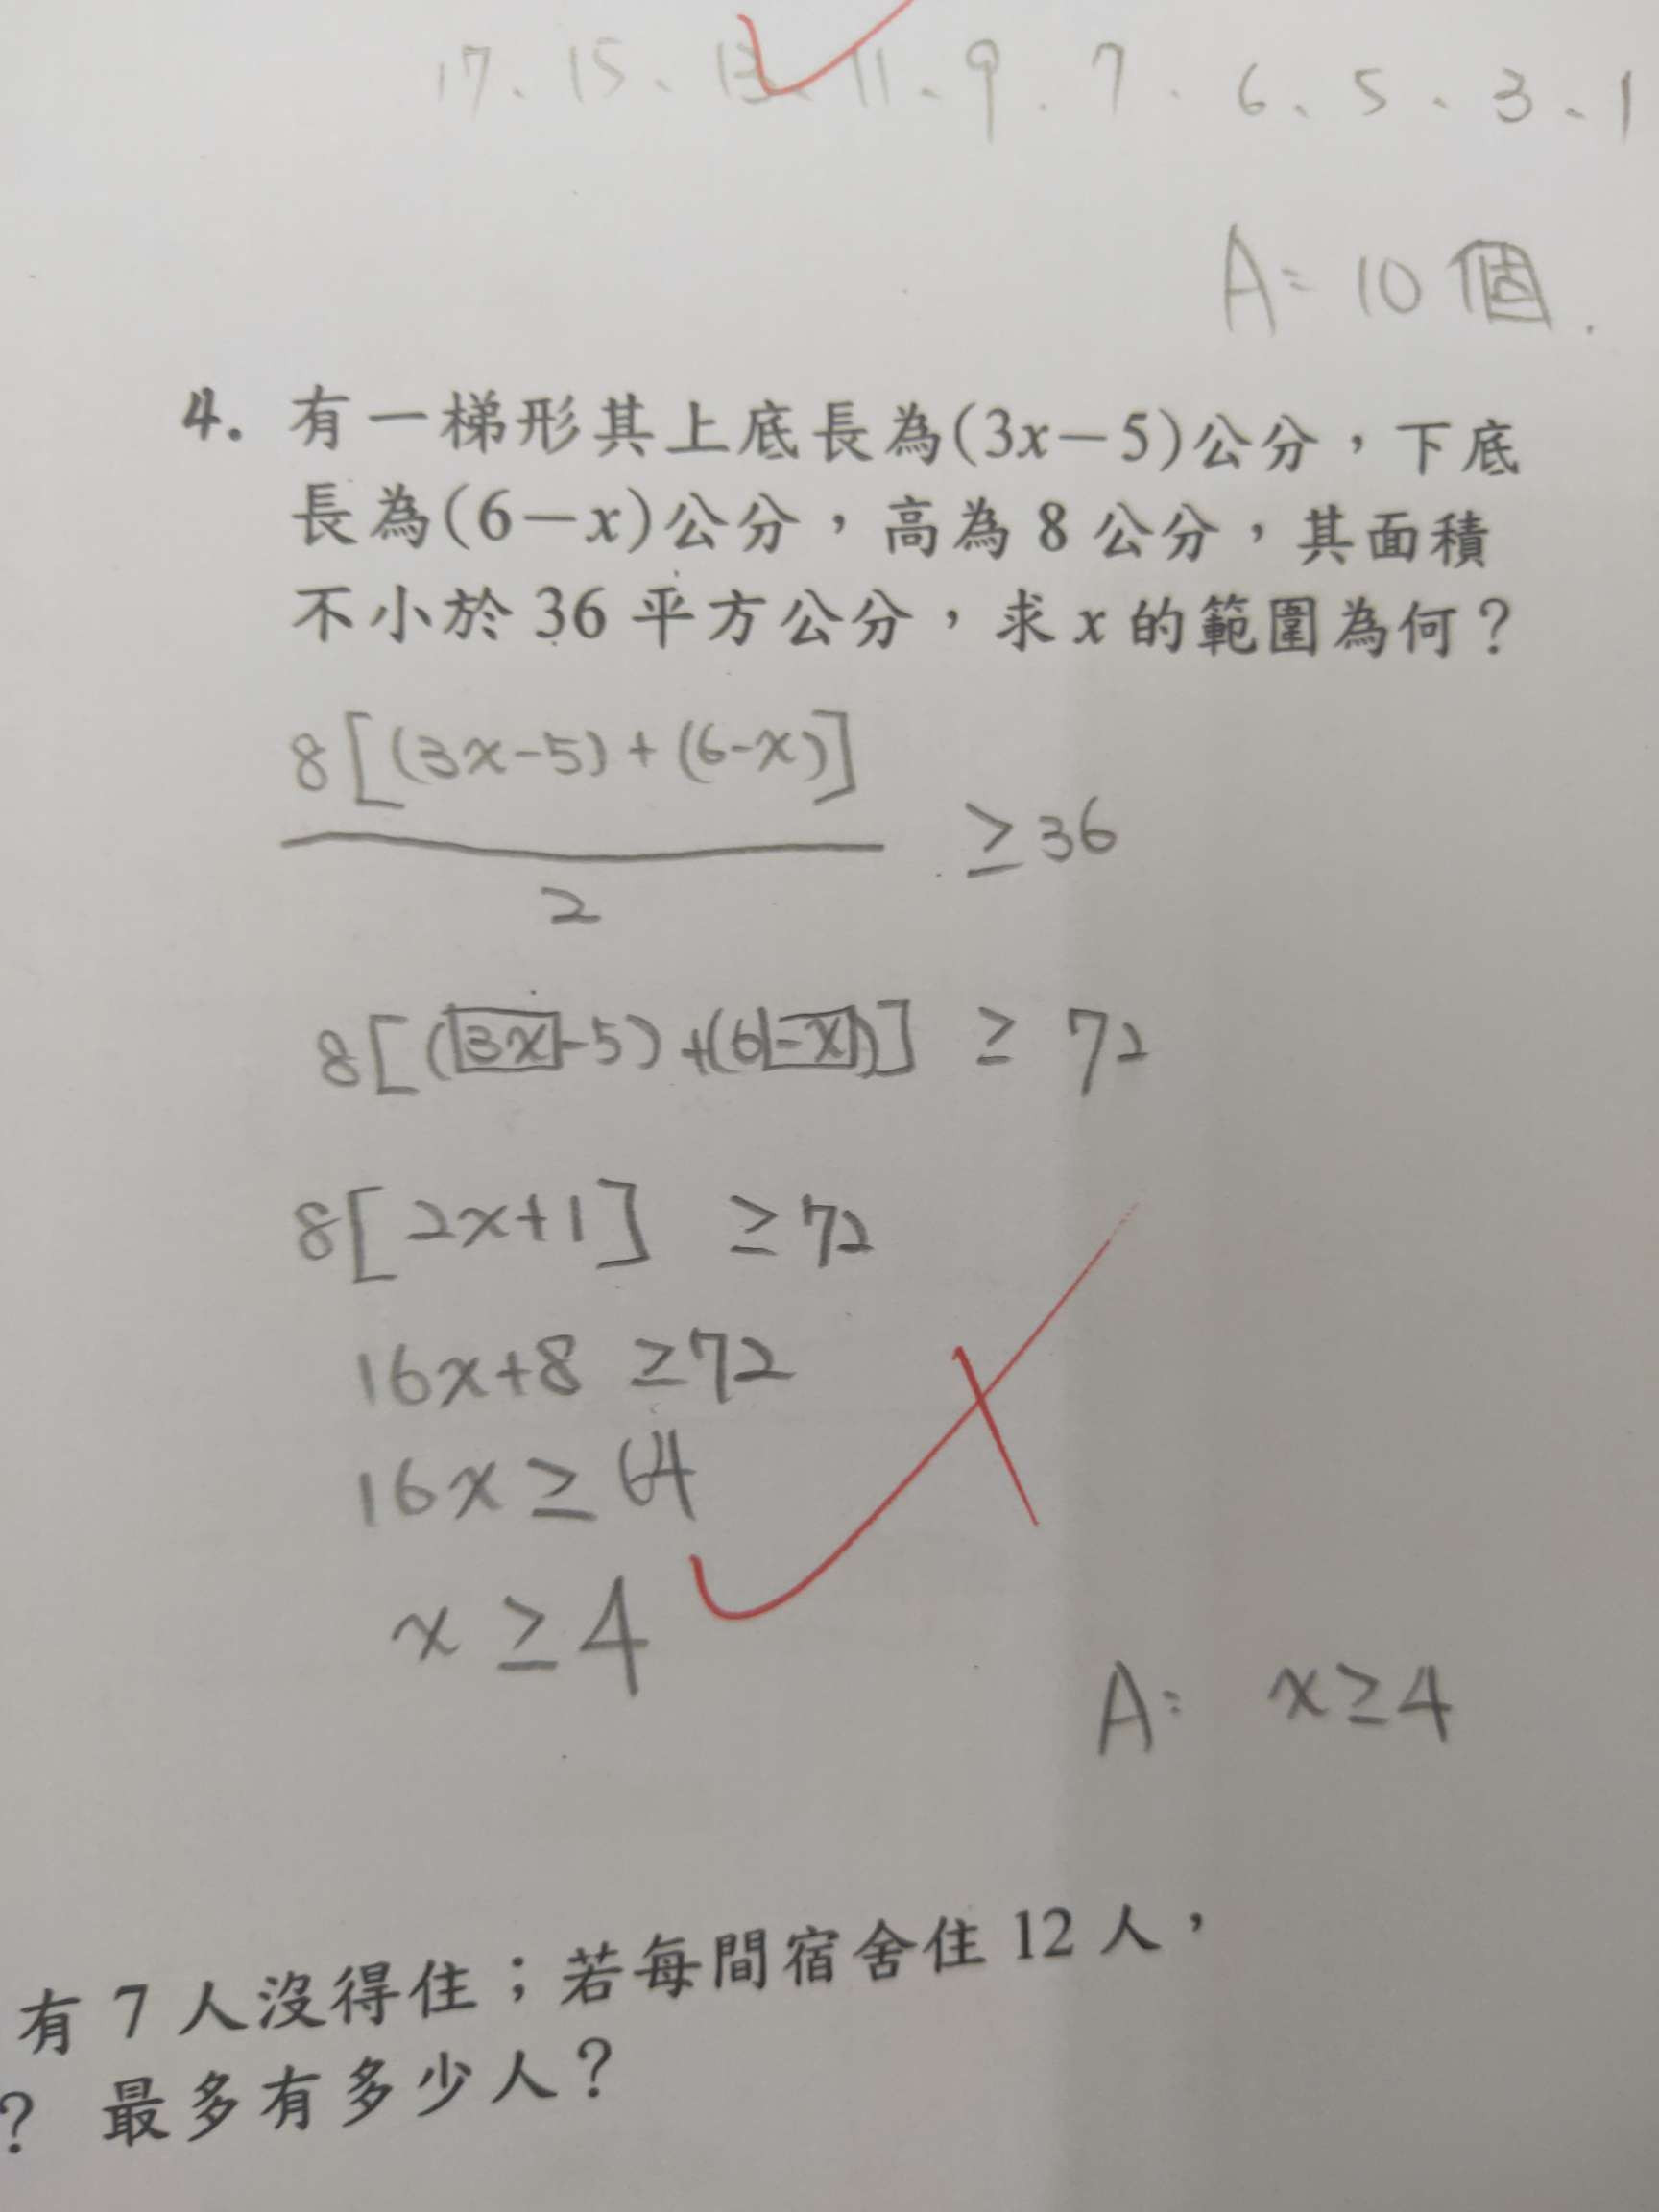 17、15、13、11、9、7、6、5、3、1
A: 10個.
4. 有一梯形其上底長為(3x－5)公分，下底
長為(6－x)公分，高為 8 公分，其面積
不小於 36 平方公分，求 x 的範圍為何？
8[(3x-5)+(6-x)]
≥36
2
8[(3x-5)+(6-x)] ≥ 72
8[2x+1] ≥72
16x+8 ≥72
16x ≥ 64
x ≥ 4
A: x≥4
有 7 人沒得住；若每間宿舍住 12 人，
？ 最多有多少人？